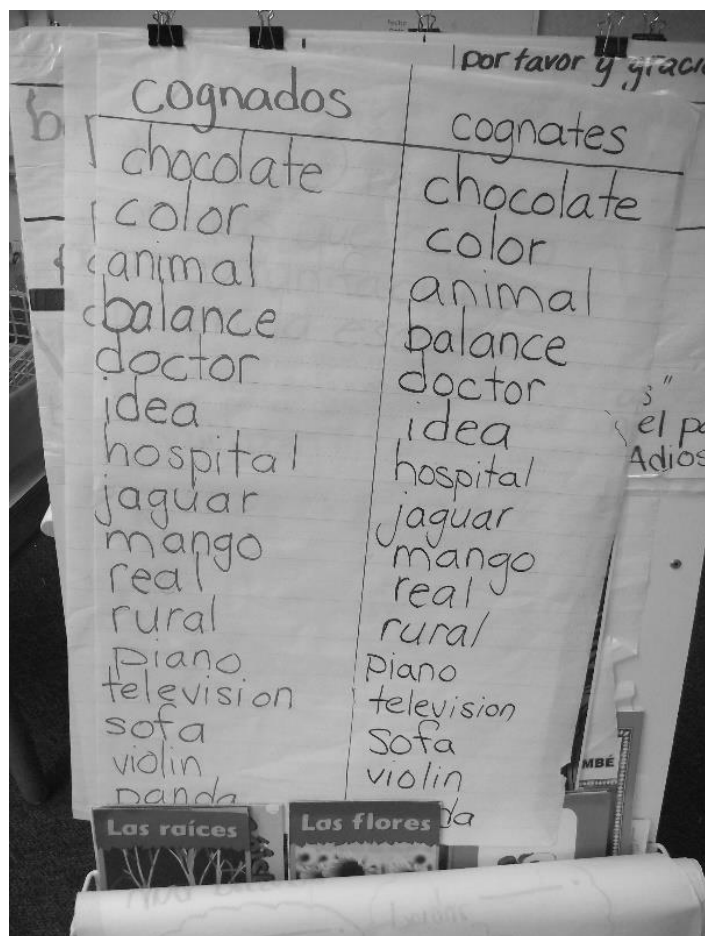 por favor y
cognados cognates
chocolate chocolate
color color
animal animal
balance balance
doctor doctor
idea idea
hospital hospital
jaguar jaguar
mango mango
real real
rural rural
piano piano
television television
sofa sofa
violin violin
panda da
s"
el
Adios
MBÉ
Las raíces Las flores